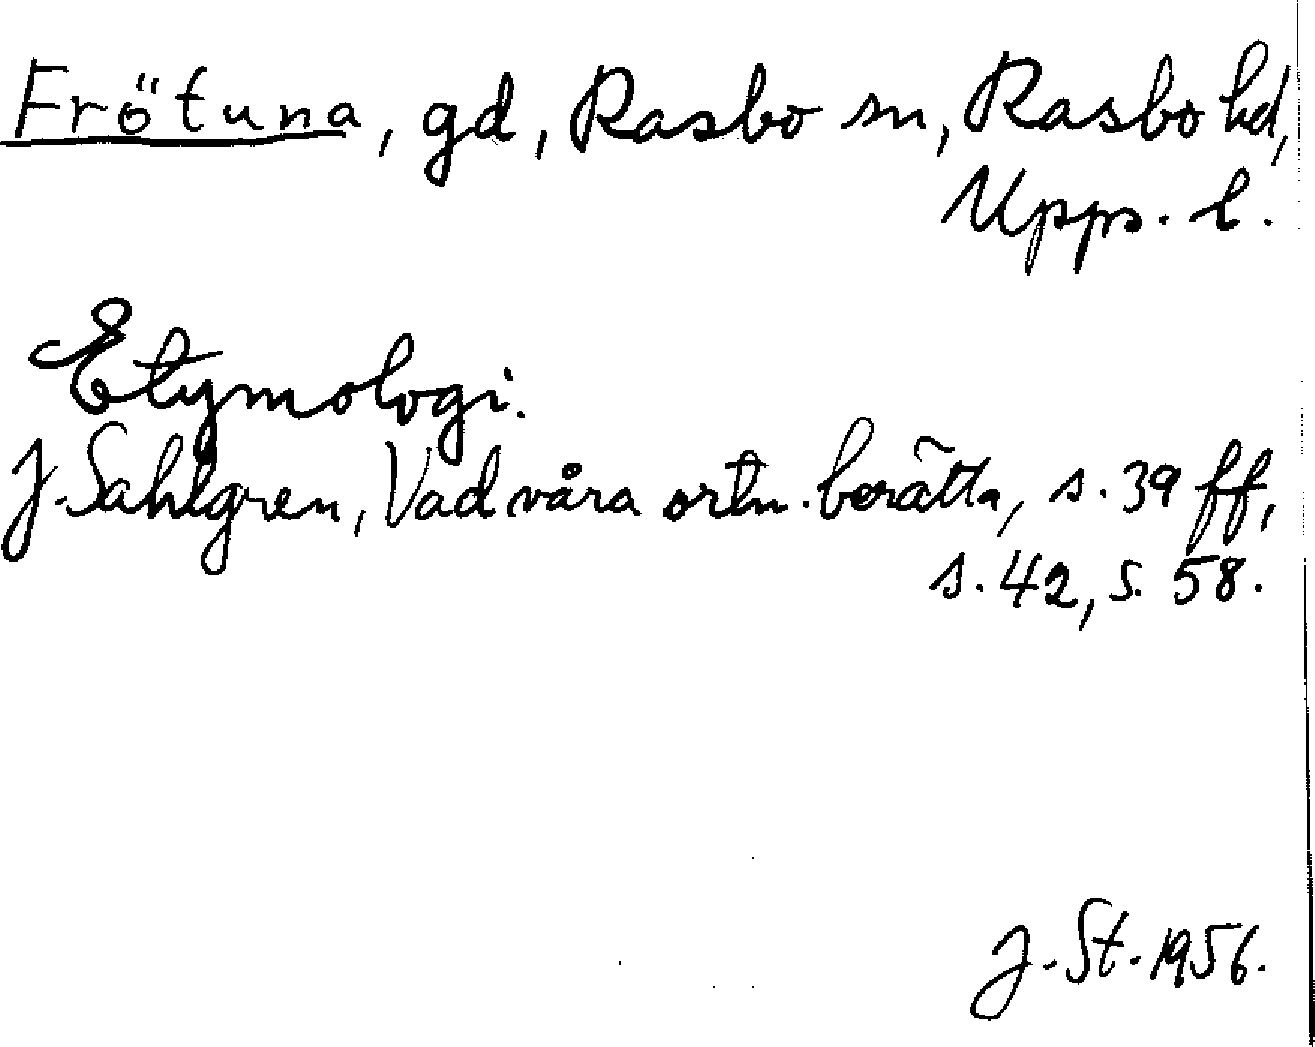 Frötuna, gd, Rasbo sn, Rasbo hd,
Upps. l.
Etymologi.
J. Sahlgren, Vad våra ortn. berätta, s. 39 ff,
s. 42, s. 58.
J. St. 1956.